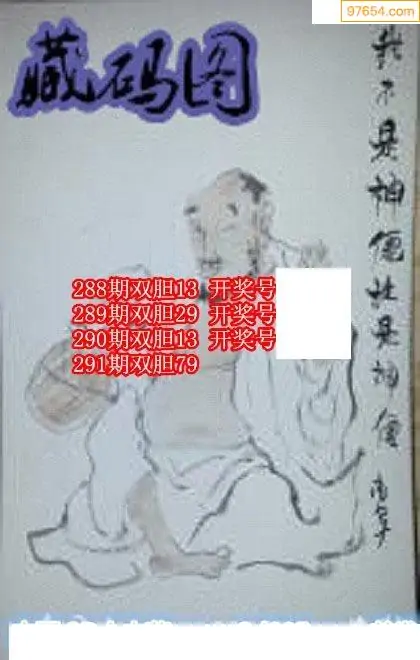 97654.com
藏码图
不是神 是神
288期双胆13 开奖号
289期双胆29 开奖号
290期双胆13 开奖号
291期双胆79